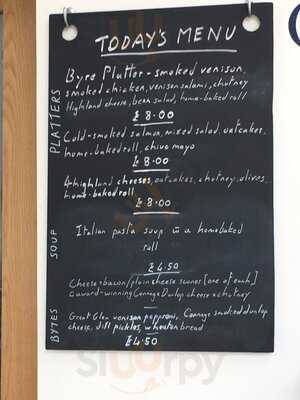 TODAY'S MENU
PLATTERS
Byre Platter - smoked venison,
smoked chicken, venison salami, chutney
Highland cheese, bean salad, home-baked roll
£8.00
Cold-smoked salmon, mixed salad, oatcakes,
home-baked roll, chive mayo
£8.00
4 highland cheeses, oatcakes, chutney, olives,
home-baked roll
£8.00
SOUP
Italian pasta soup in a homebaked
roll
£4.50
BYTES
Cheese+bacon/plain cheese scones [one of each]
award-winning Connage Dunlop cheese + chutney
Great Glen venison pepperoni, Connage smoked dunlop
cheese, dill pickles, wheaten bread
£4.50
sluurpy